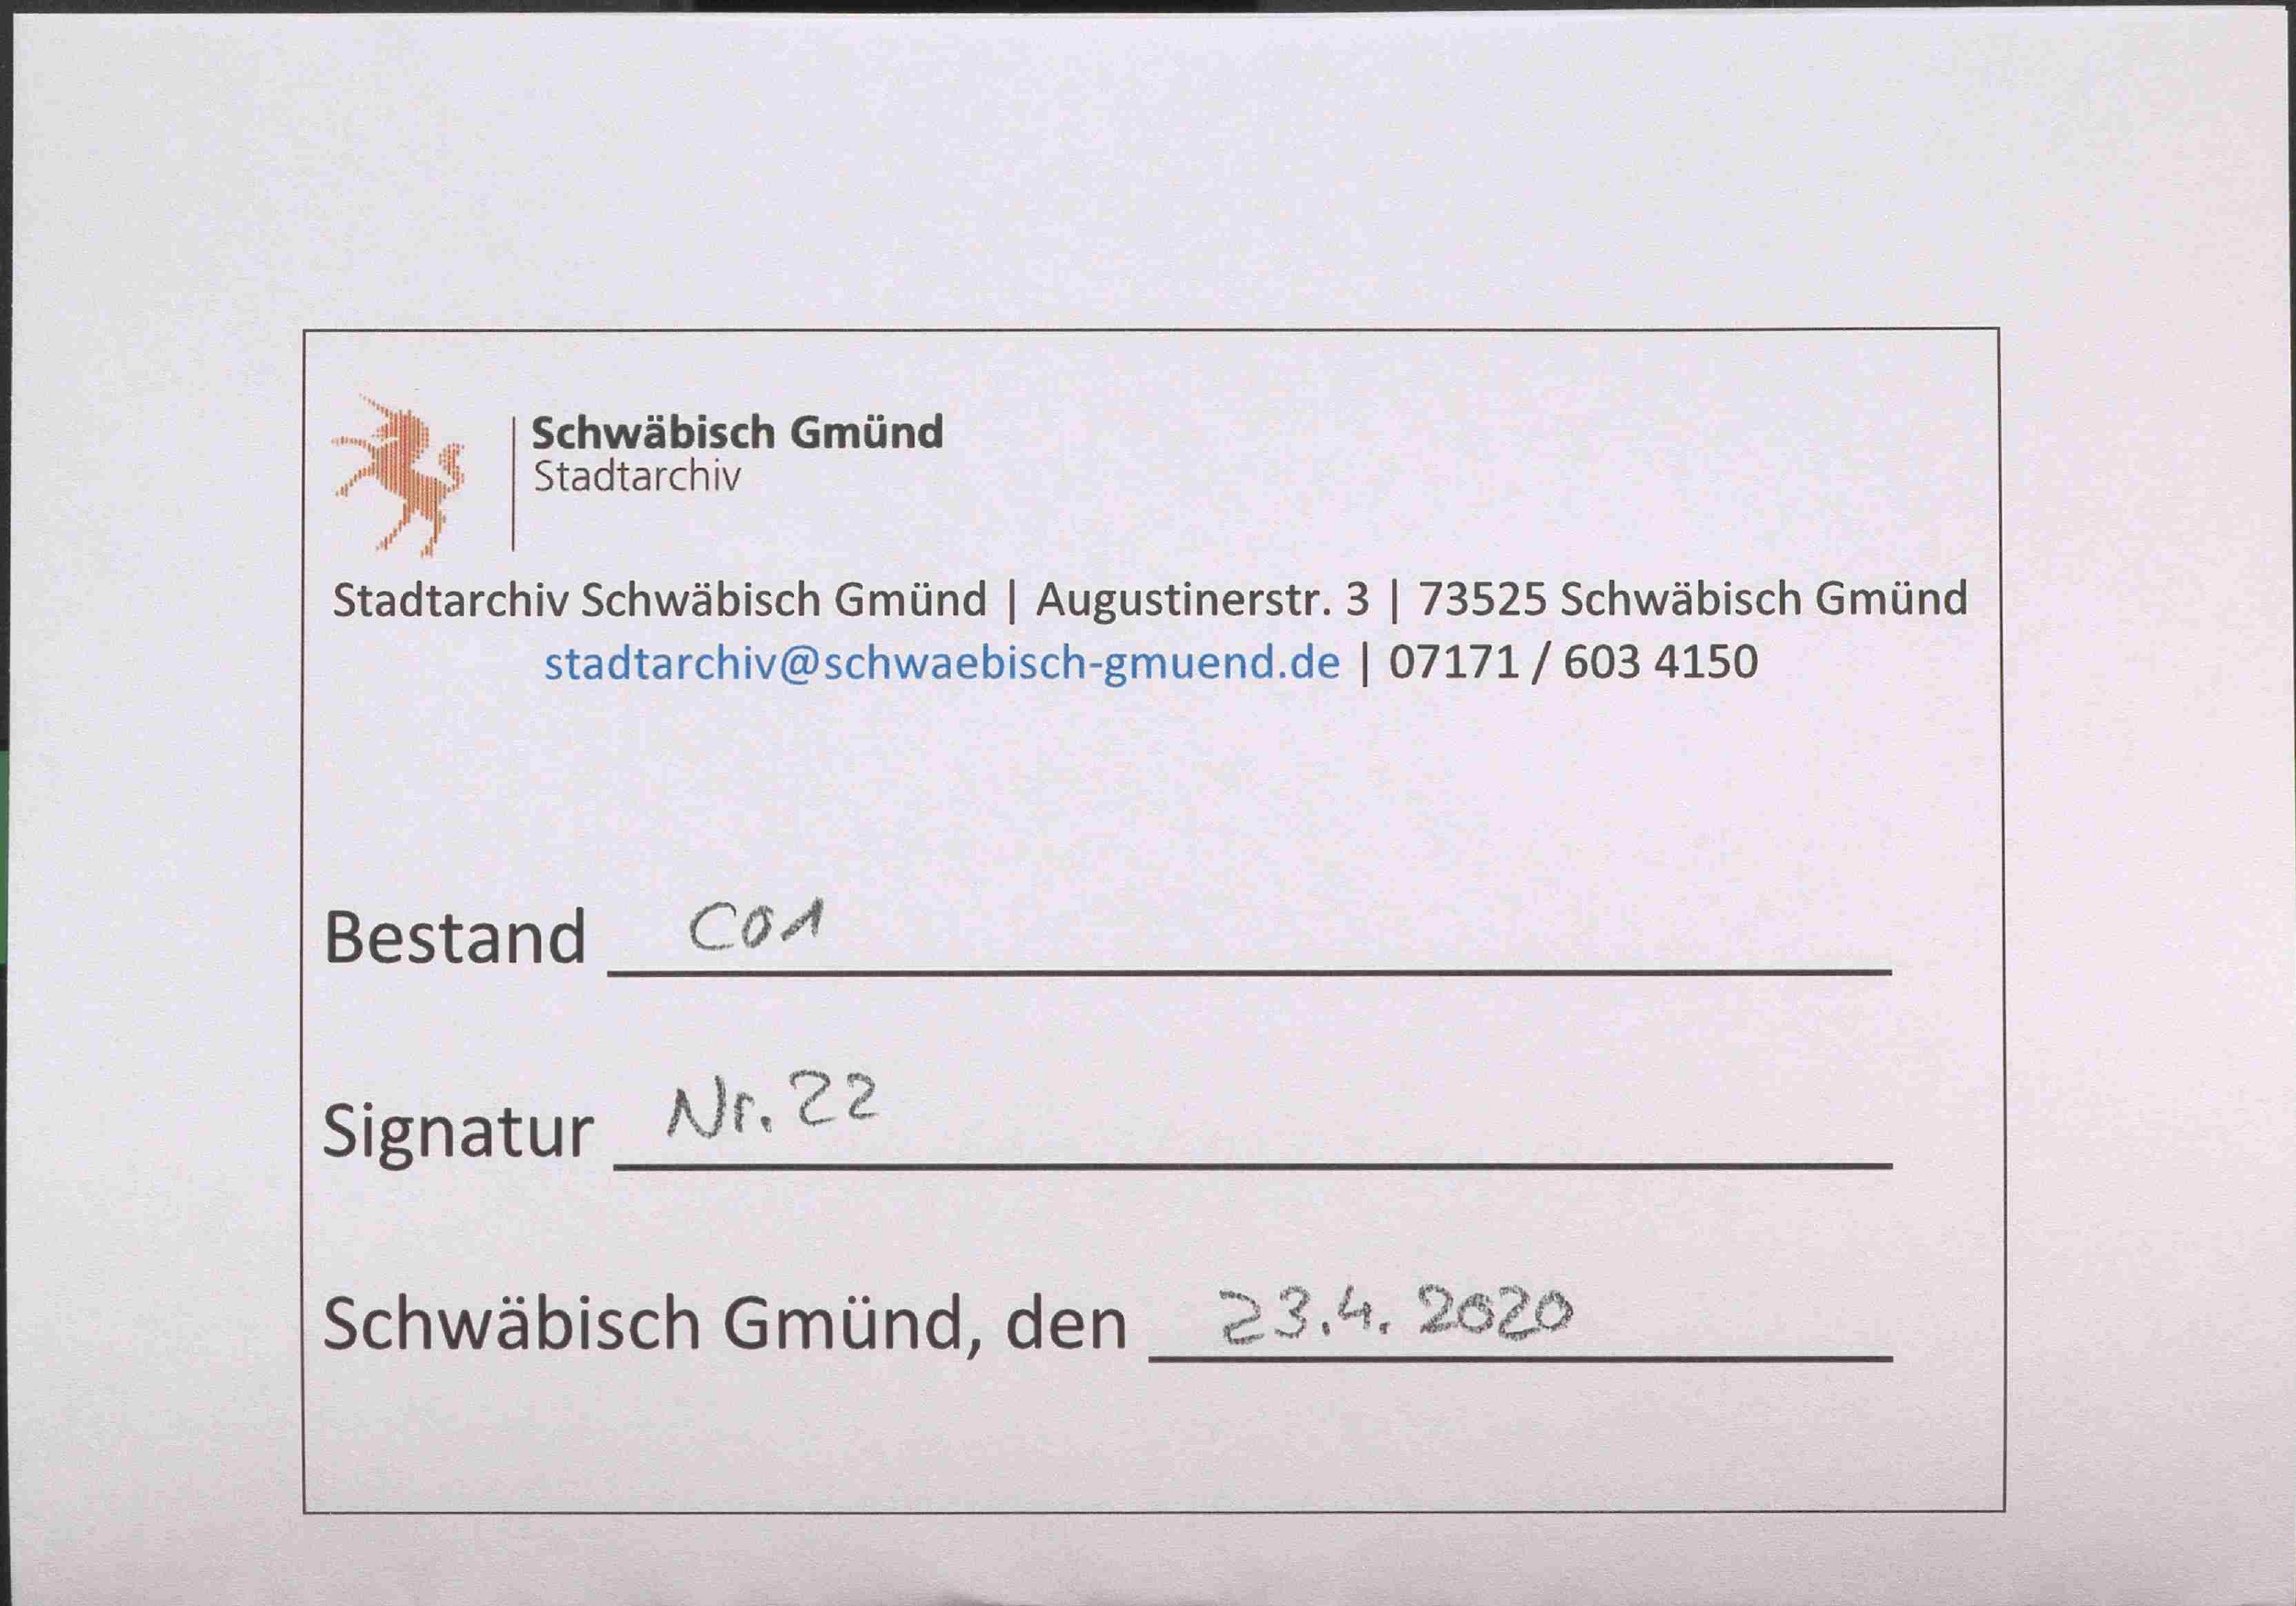 Schwäbisch Gmünd
Stadtarchiv
Stadtarchiv Schwäbisch Gmünd | Augustinerstr. 3 | 73525 Schwäbisch Gmünd
stadtarchiv@schwaebisch-gmuend.de | 07171 / 603 4150
Bestand C01
Signatur Nr. 22
Schwäbisch Gmünd, den 23.4. 2020